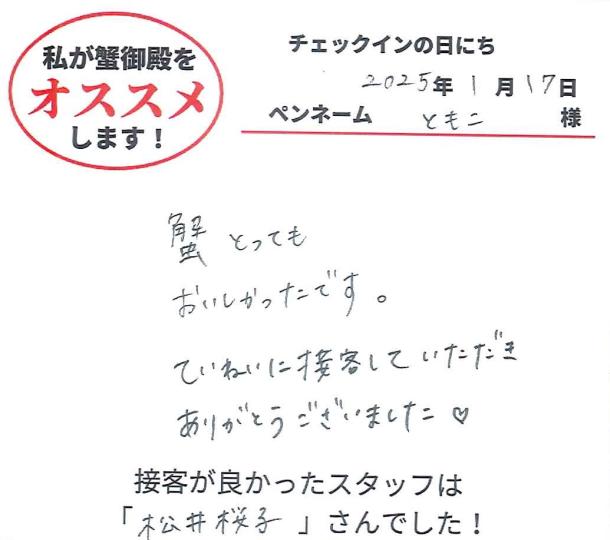 私が蟹御殿を
オススメ
します！
チェックインの日にち
2025年1月17日
ペンネーム ともこ 様
蟹 とっても
おいしかったです。
ていねいに接客していただき
ありがとうございました♡
接客が良かったスタッフは
「松井桜子」さんでした！